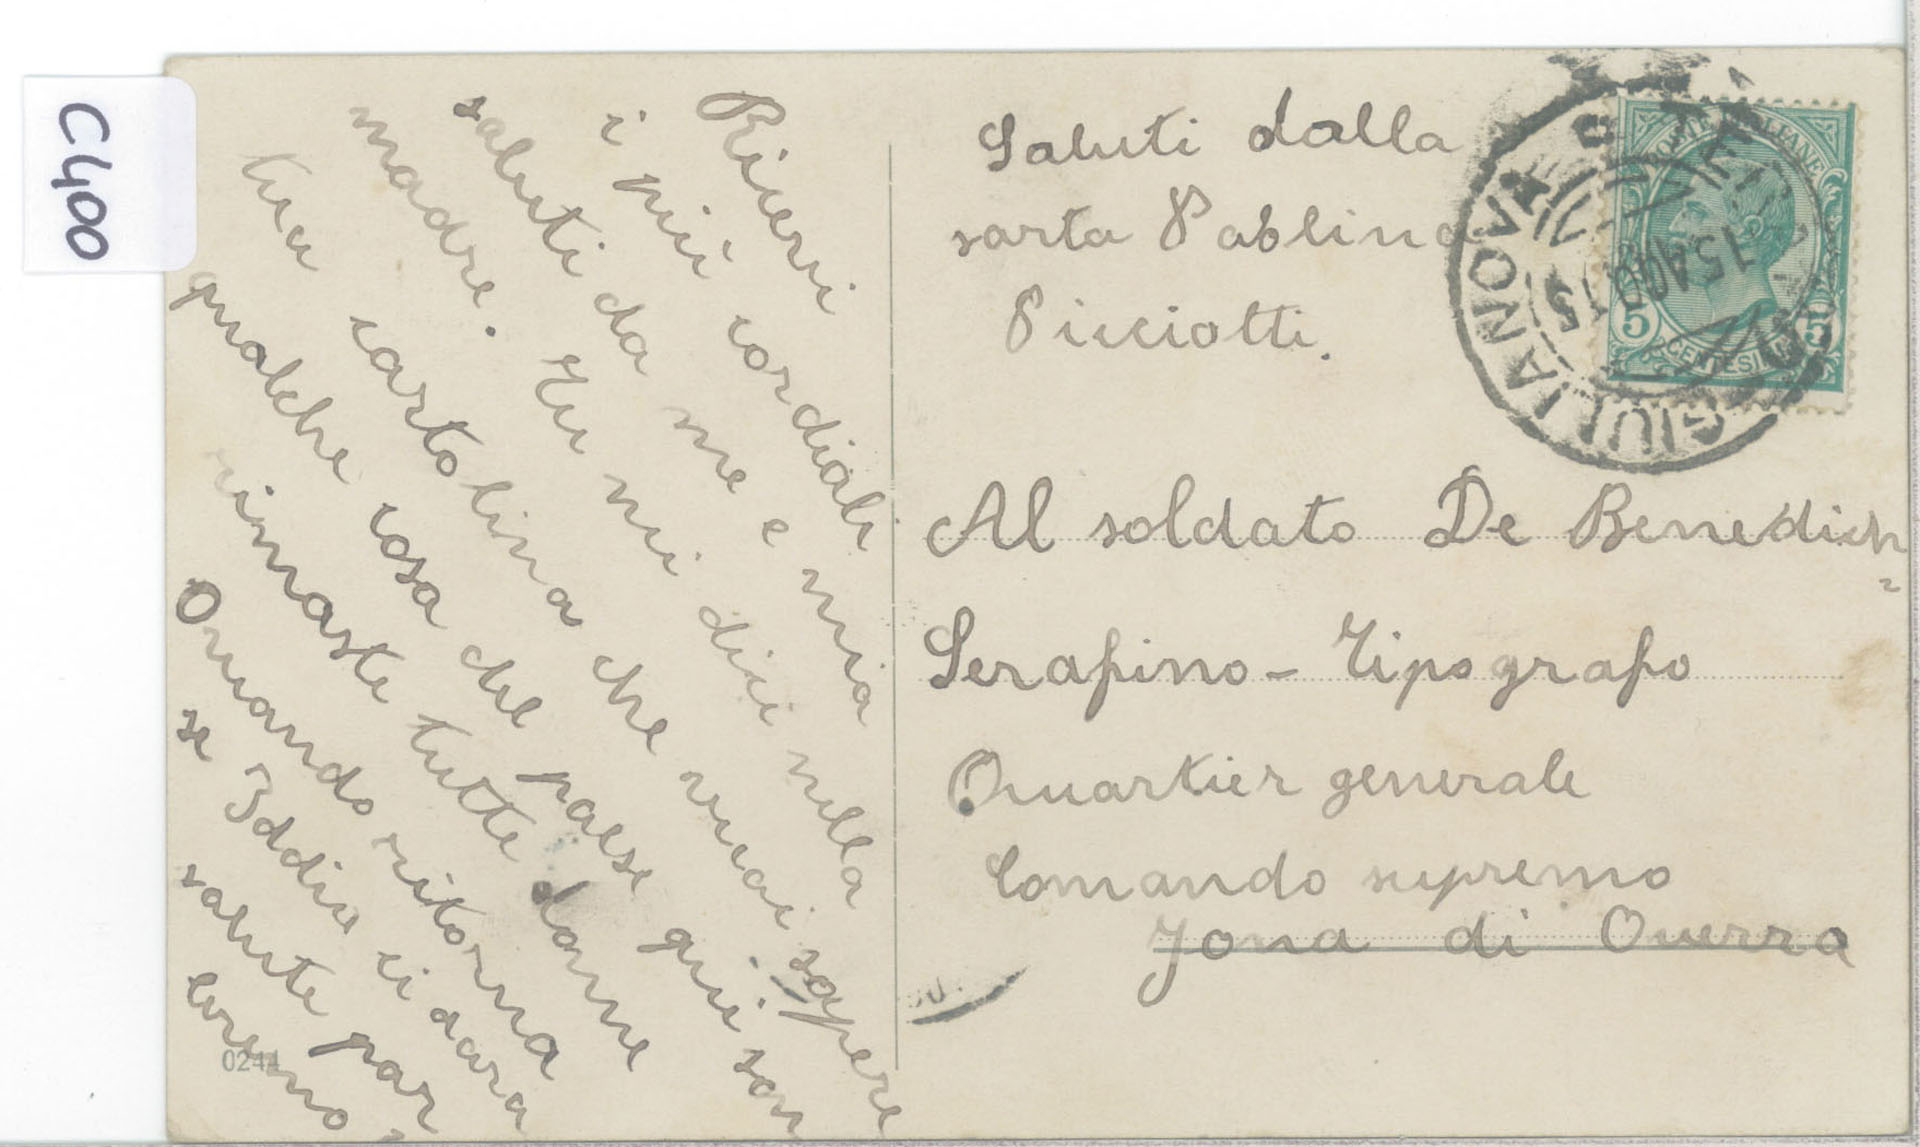 C400
Ricevi
i più cordiali
saluti da me e mia
madre. Tu mi dici nella
tua cartolina che vuoi sapere
qualche cosa del paese qui son
rimaste tutte donne
Quando ritorna
se Iddio ci dara
salute par
leremo
0244
Saluti dalla
sarta Pablina
Picciotti.
GIULIANOVA
15 AGO 15
POSTE ITALIANE
5 5
CENTESIMI
Al soldato De Benedicti
Serafino - Tipografo
Quartier generale
Comando supremo
Zona di Guerra